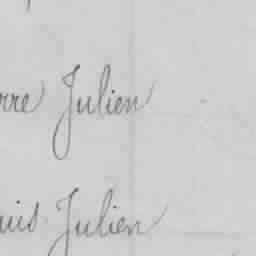 rre Julien
uis Julien